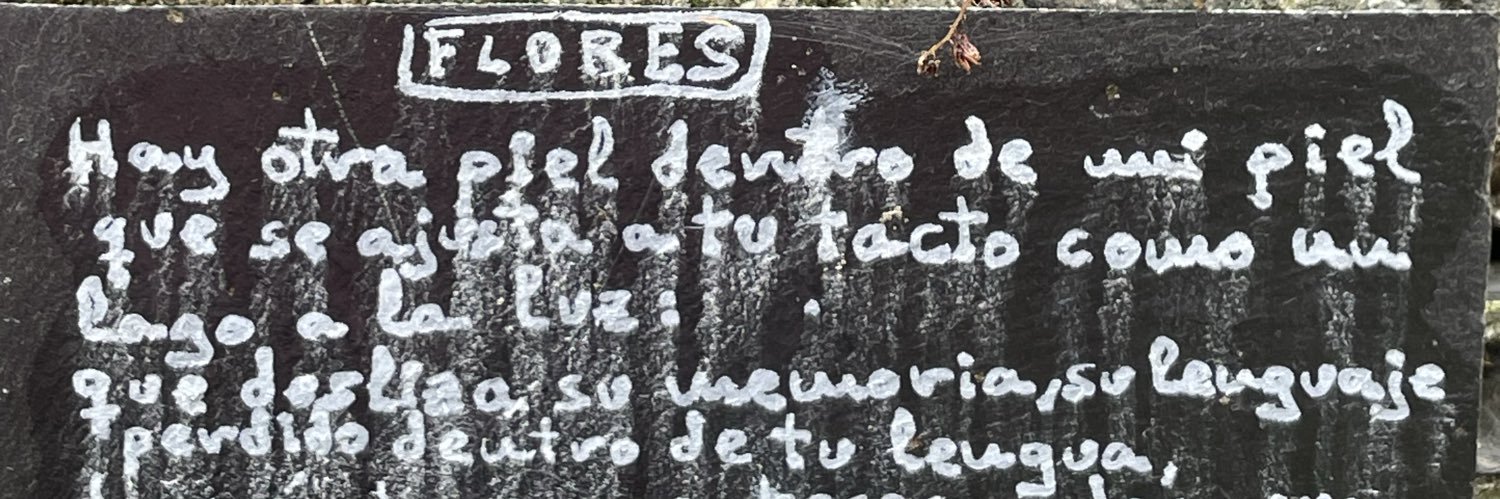 FLORES
Hay otra piel dentro de mi piel
que se ajusta a tu tacto como un
lago a la luz:
que desliza su memoria, su lenguaje
perdido dentro de tu lengua,